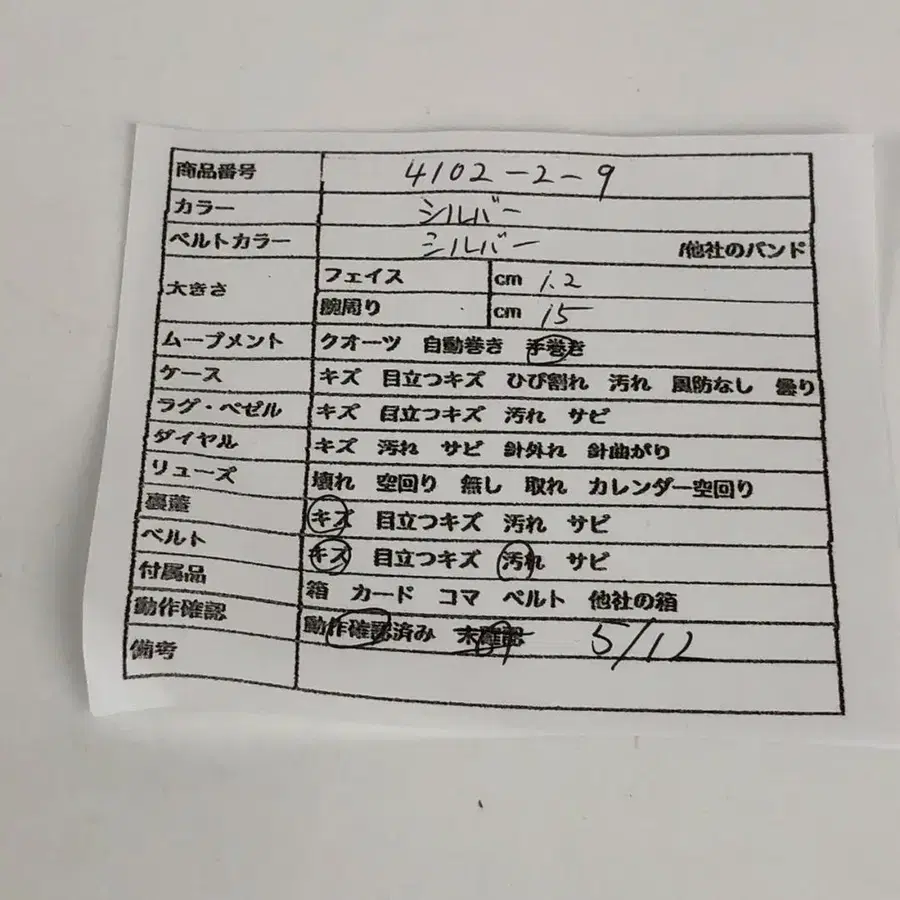 商品番号 4102-2-9
カラー シルバー
ベルトカラー シルバー /他社のバンド
大きさ フェイス cm 1.2
腕周り cm 15
ムーブメント クオーツ 自動巻き 手巻き
ケース キズ 目立つキズ ひび割れ 汚れ 風防なし 曇り
ラグ・ベゼル キズ 目立つキズ 汚れ サビ
ダイヤル キズ 汚れ サビ 針外れ 針曲がり
リューズ 壊れ 空回り 無し 取れ カレンダー空回り
裏蓋 キズ 目立つキズ 汚れ サビ
ベルト キズ 目立つキズ 汚れ サビ
付属品 箱 カード コマ ベルト 他社の箱
動作確認 動作確認済み 未確認 5/12
備考